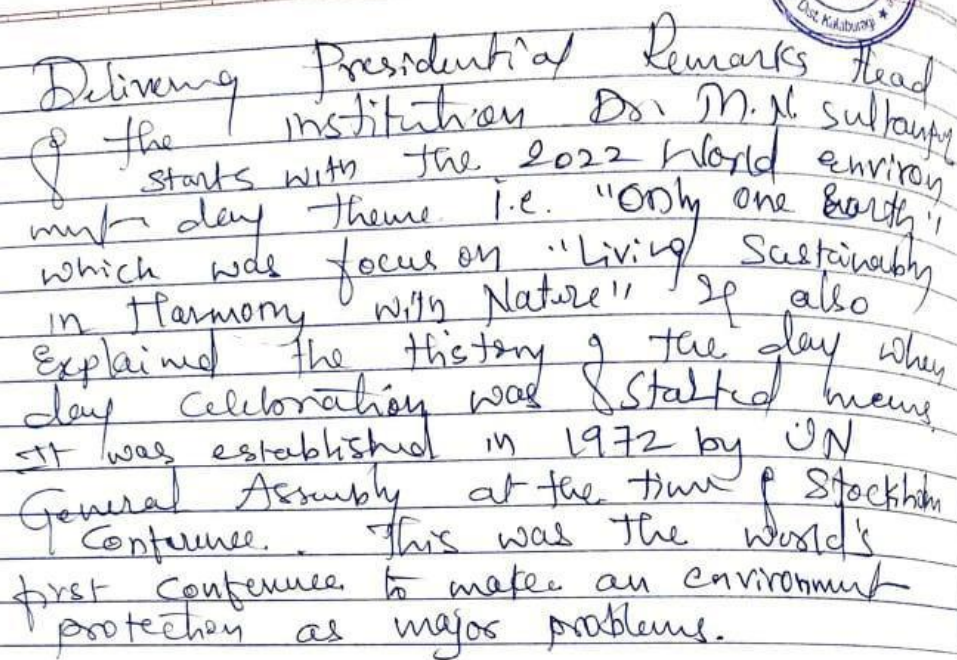 Dist. Kalaburagi ★
Delivering Presidential Remarks Head
of the institution Dr. M.N. Sultanpur
starts with the 2022 World environ
ment day theme i.e. "Only one Earth",
which was focus on "Living Sustainably
in Harmony with Nature" & also
Explained the History of the day when
day Celebration was Started means
It was established in 1972 by UN
General Assembly at the time of Stockholm
Conference. This was the World's
first Conference to make an environment
protection as major problems.